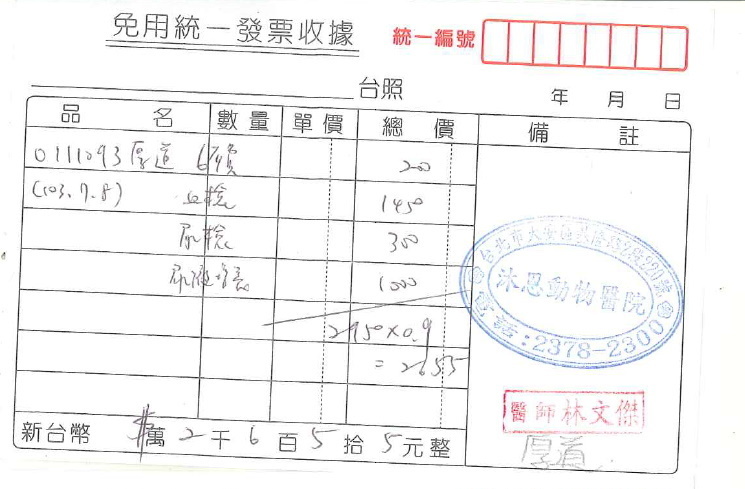 免用統一發票收據
統一編號
台照
年 月 日
品 名 數量 單價 總 價 備 註
0111093 厚道 掛號 200
(103.7.8) 血檢 1450
尿檢 300
尿液培養 1000
2950×0.9
=2655
沐恩動物醫院
電話:2378-2300
醫師林文傑
新台幣 萬 2 千 6 百 5 拾 5 元整
厚道